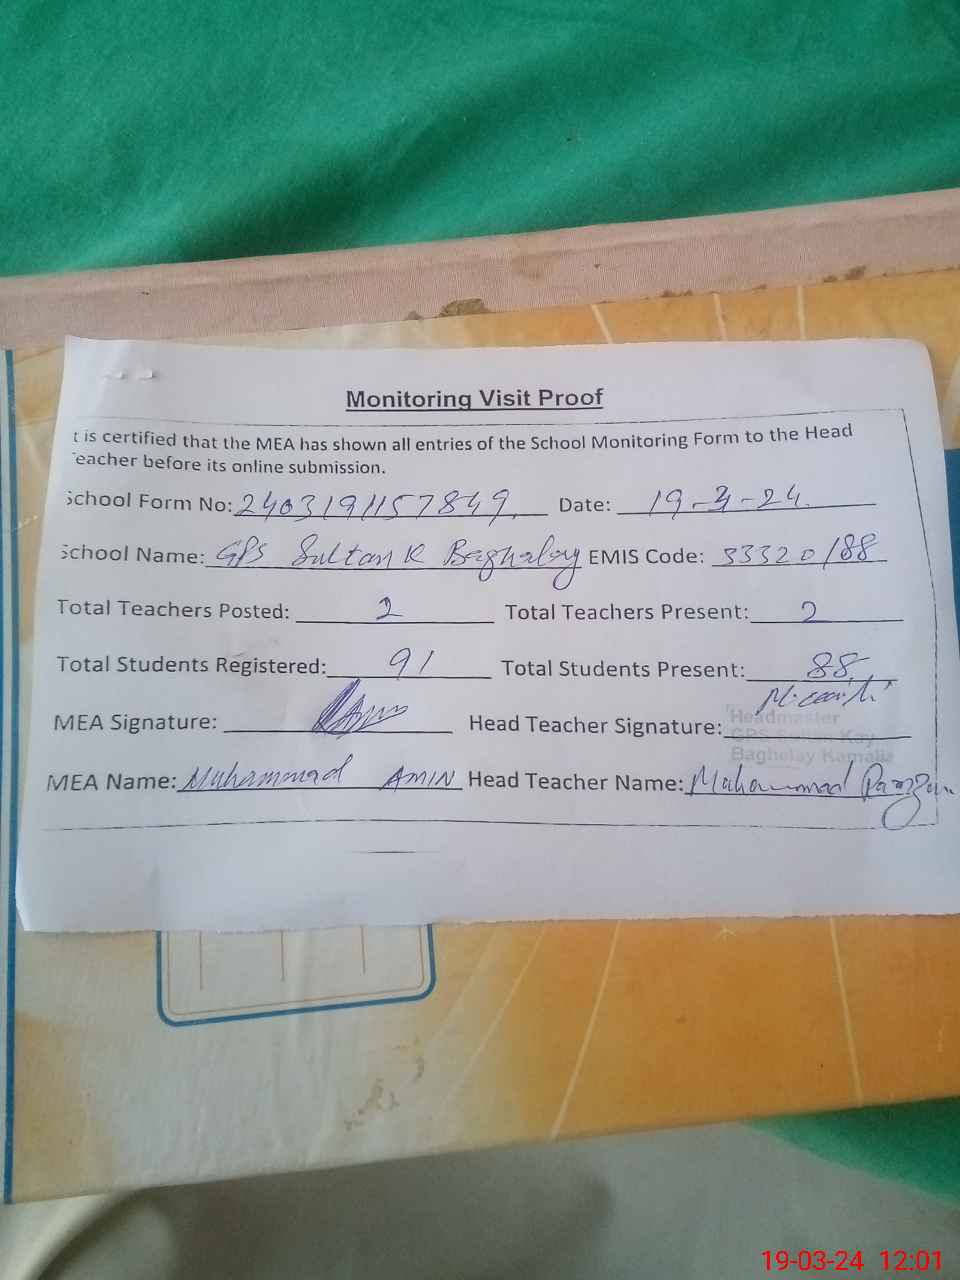 Monitoring Visit Proof
t is certified that the MEA has shown all entries of the School Monitoring Form to the Head
eacher before its online submission.
School Form No: 2403191157849 Date: 19-3-24.
School Name: GPS Sultan K Baghelay EMIS Code: 33320188
Total Teachers Posted: 2 Total Teachers Present: 2
Total Students Registered: 91 Total Students Present: 88
MEA Signature: Head Teacher Signature:
Headmaster
GPS Kay
Baghelay Kamalia
MEA Name: Muhammad AMIN Head Teacher Name: Muhammad
19-03-24 12:01